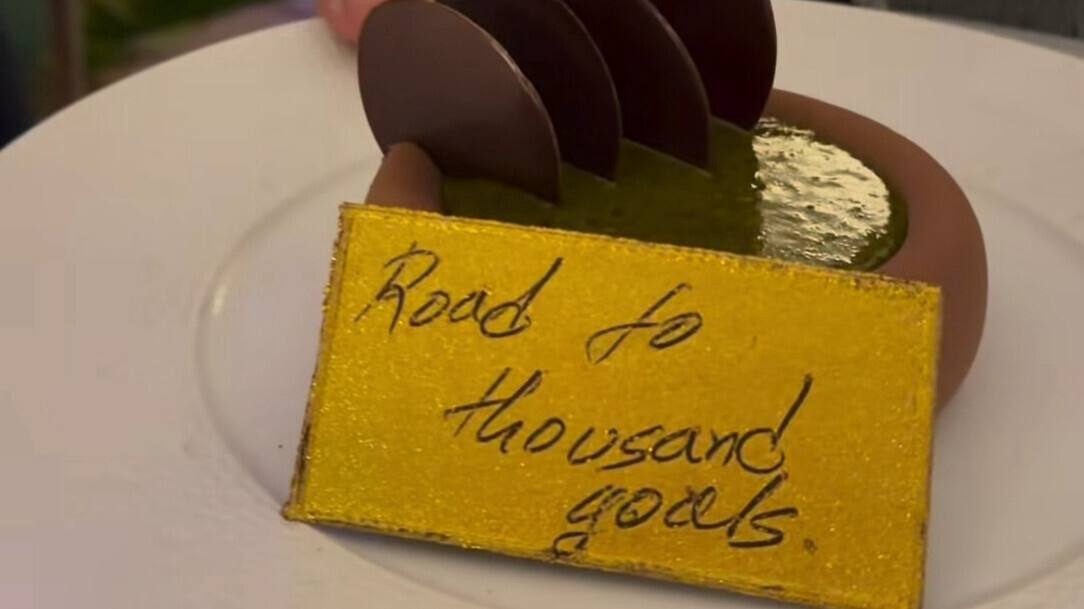 Road to
thousand
goals.